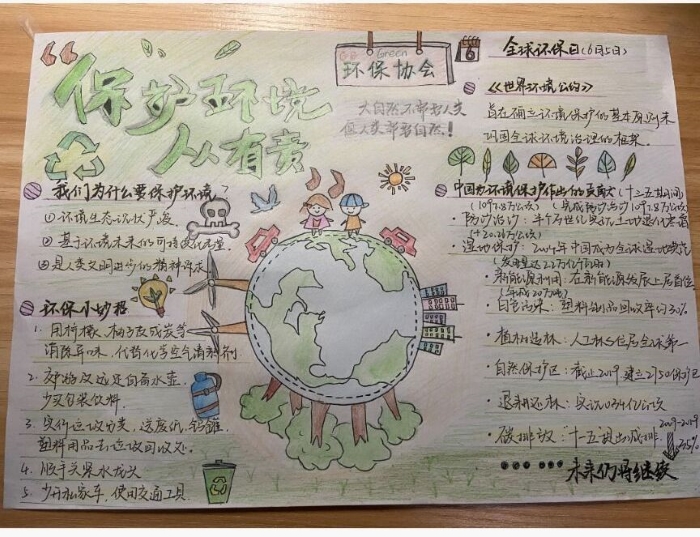 “保护环境
人人有责”
Green
环保协会
大自然不需要人类
但人类需要自然！
我们为什么要保护环境？
① 环境生态现状严峻
② 基于环境未来的可持续化
③ 是人类文明进步的精神诉求
环保小妙招
1. 用柠檬、柚子皮或炭等
消除车味，代替化学空气清新剂
2. 郊游及远足自备水壶，
少买包装饮料.
3. 实行垃圾分类，送废纸，铝罐
塑料用品去垃圾回收处.
4. 顺手关紧水龙头
5. 少开私家车，使用交通工具
6
全球环保日 (6月5日)
《世界环境公约》
旨在确立环境保护的基本原则来
巩固全球环境治理的框架.
中国为环境保护作出的贡献 (十三五期间)
防沙治沙：
湿地保护：2004年中国成为全球湿地
新能源利用：在新能源发展上居首位
白色污染：塑料制品回收率约30%
植树造林：人工林S位居全球第一
自然保护区：截止2019 建立2750保护区
退耕还林：实现
碳排放
2009-2019
未来仍将继续